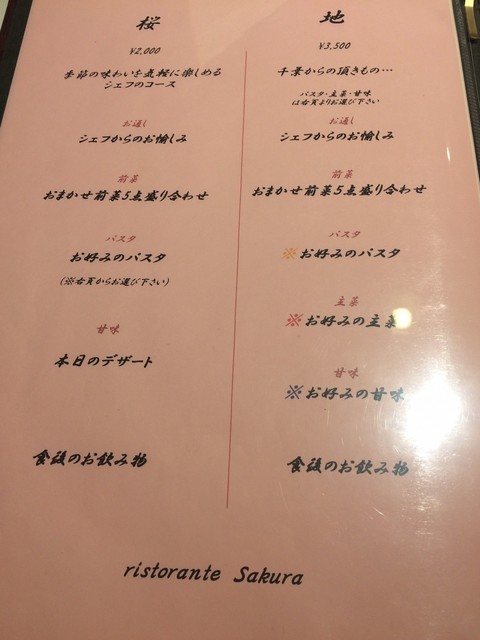 桜
¥2,000
季節の味わいを気軽に楽しめる
シェフのコース
お通し
シェフからのお愉しみ
前菜
おまかせ前菜5点盛り合わせ
パスタ
お好みのパスタ
(※右頁からお選び下さい)
甘味
本日のデザート
食後のお飲み物
地
¥3,500
千葉からの頂きもの…
パスタ・主菜・甘味
は右頁よりお選び下さい
お通し
シェフからのお愉しみ
前菜
おまかせ前菜5点盛り合わせ
パスタ
※お好みのパスタ
主菜
※お好みの主菜
甘味
※お好みの甘味
食後のお飲み物
ristorante Sakura